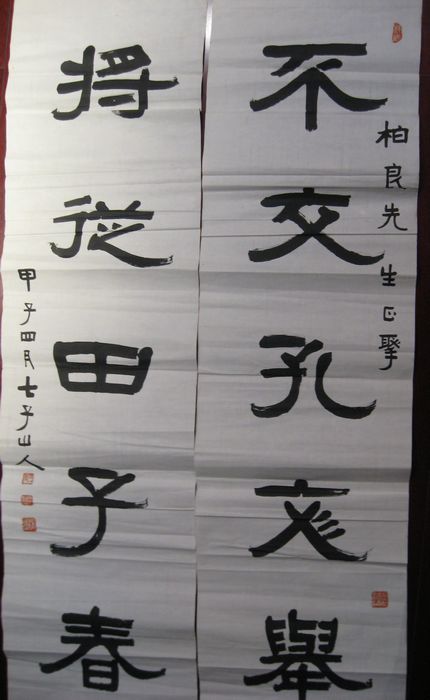 柏良先生正
不交孔文舉
將從田子春
甲子四月七子山人